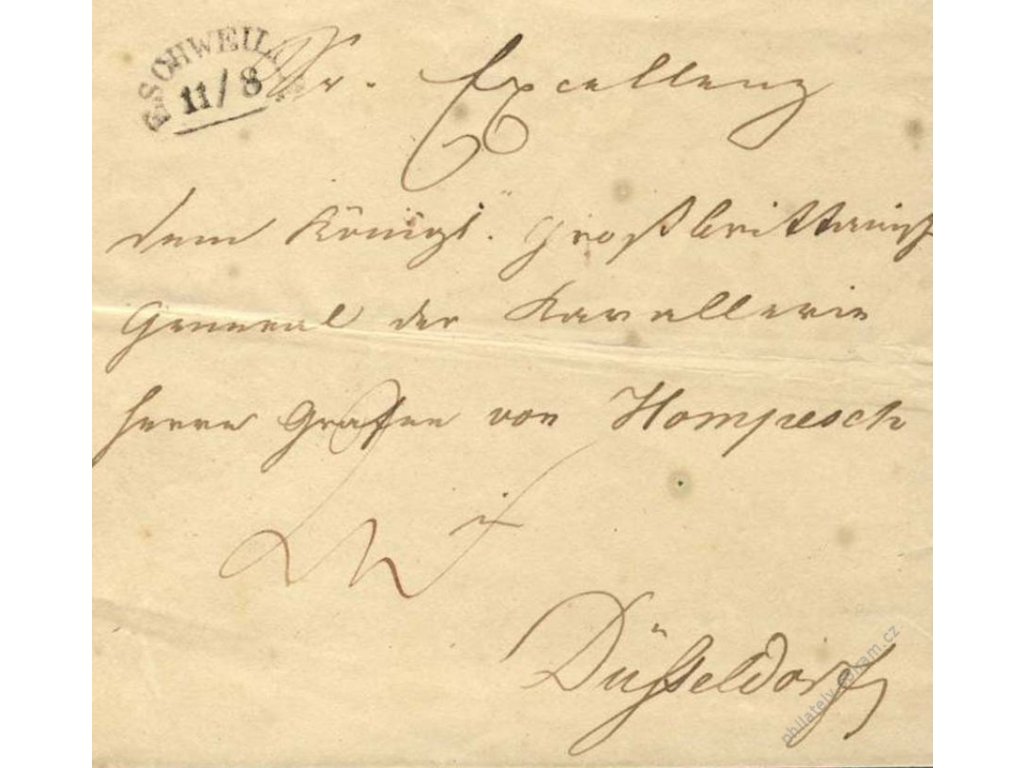 ESCHWEILER
11/8
Sr. Excellenz
dem Königl. Großbrittanisch
General der Kavallerie
Herrn Grafen von Hompesch
in
Düsseldorf
philately
.cz